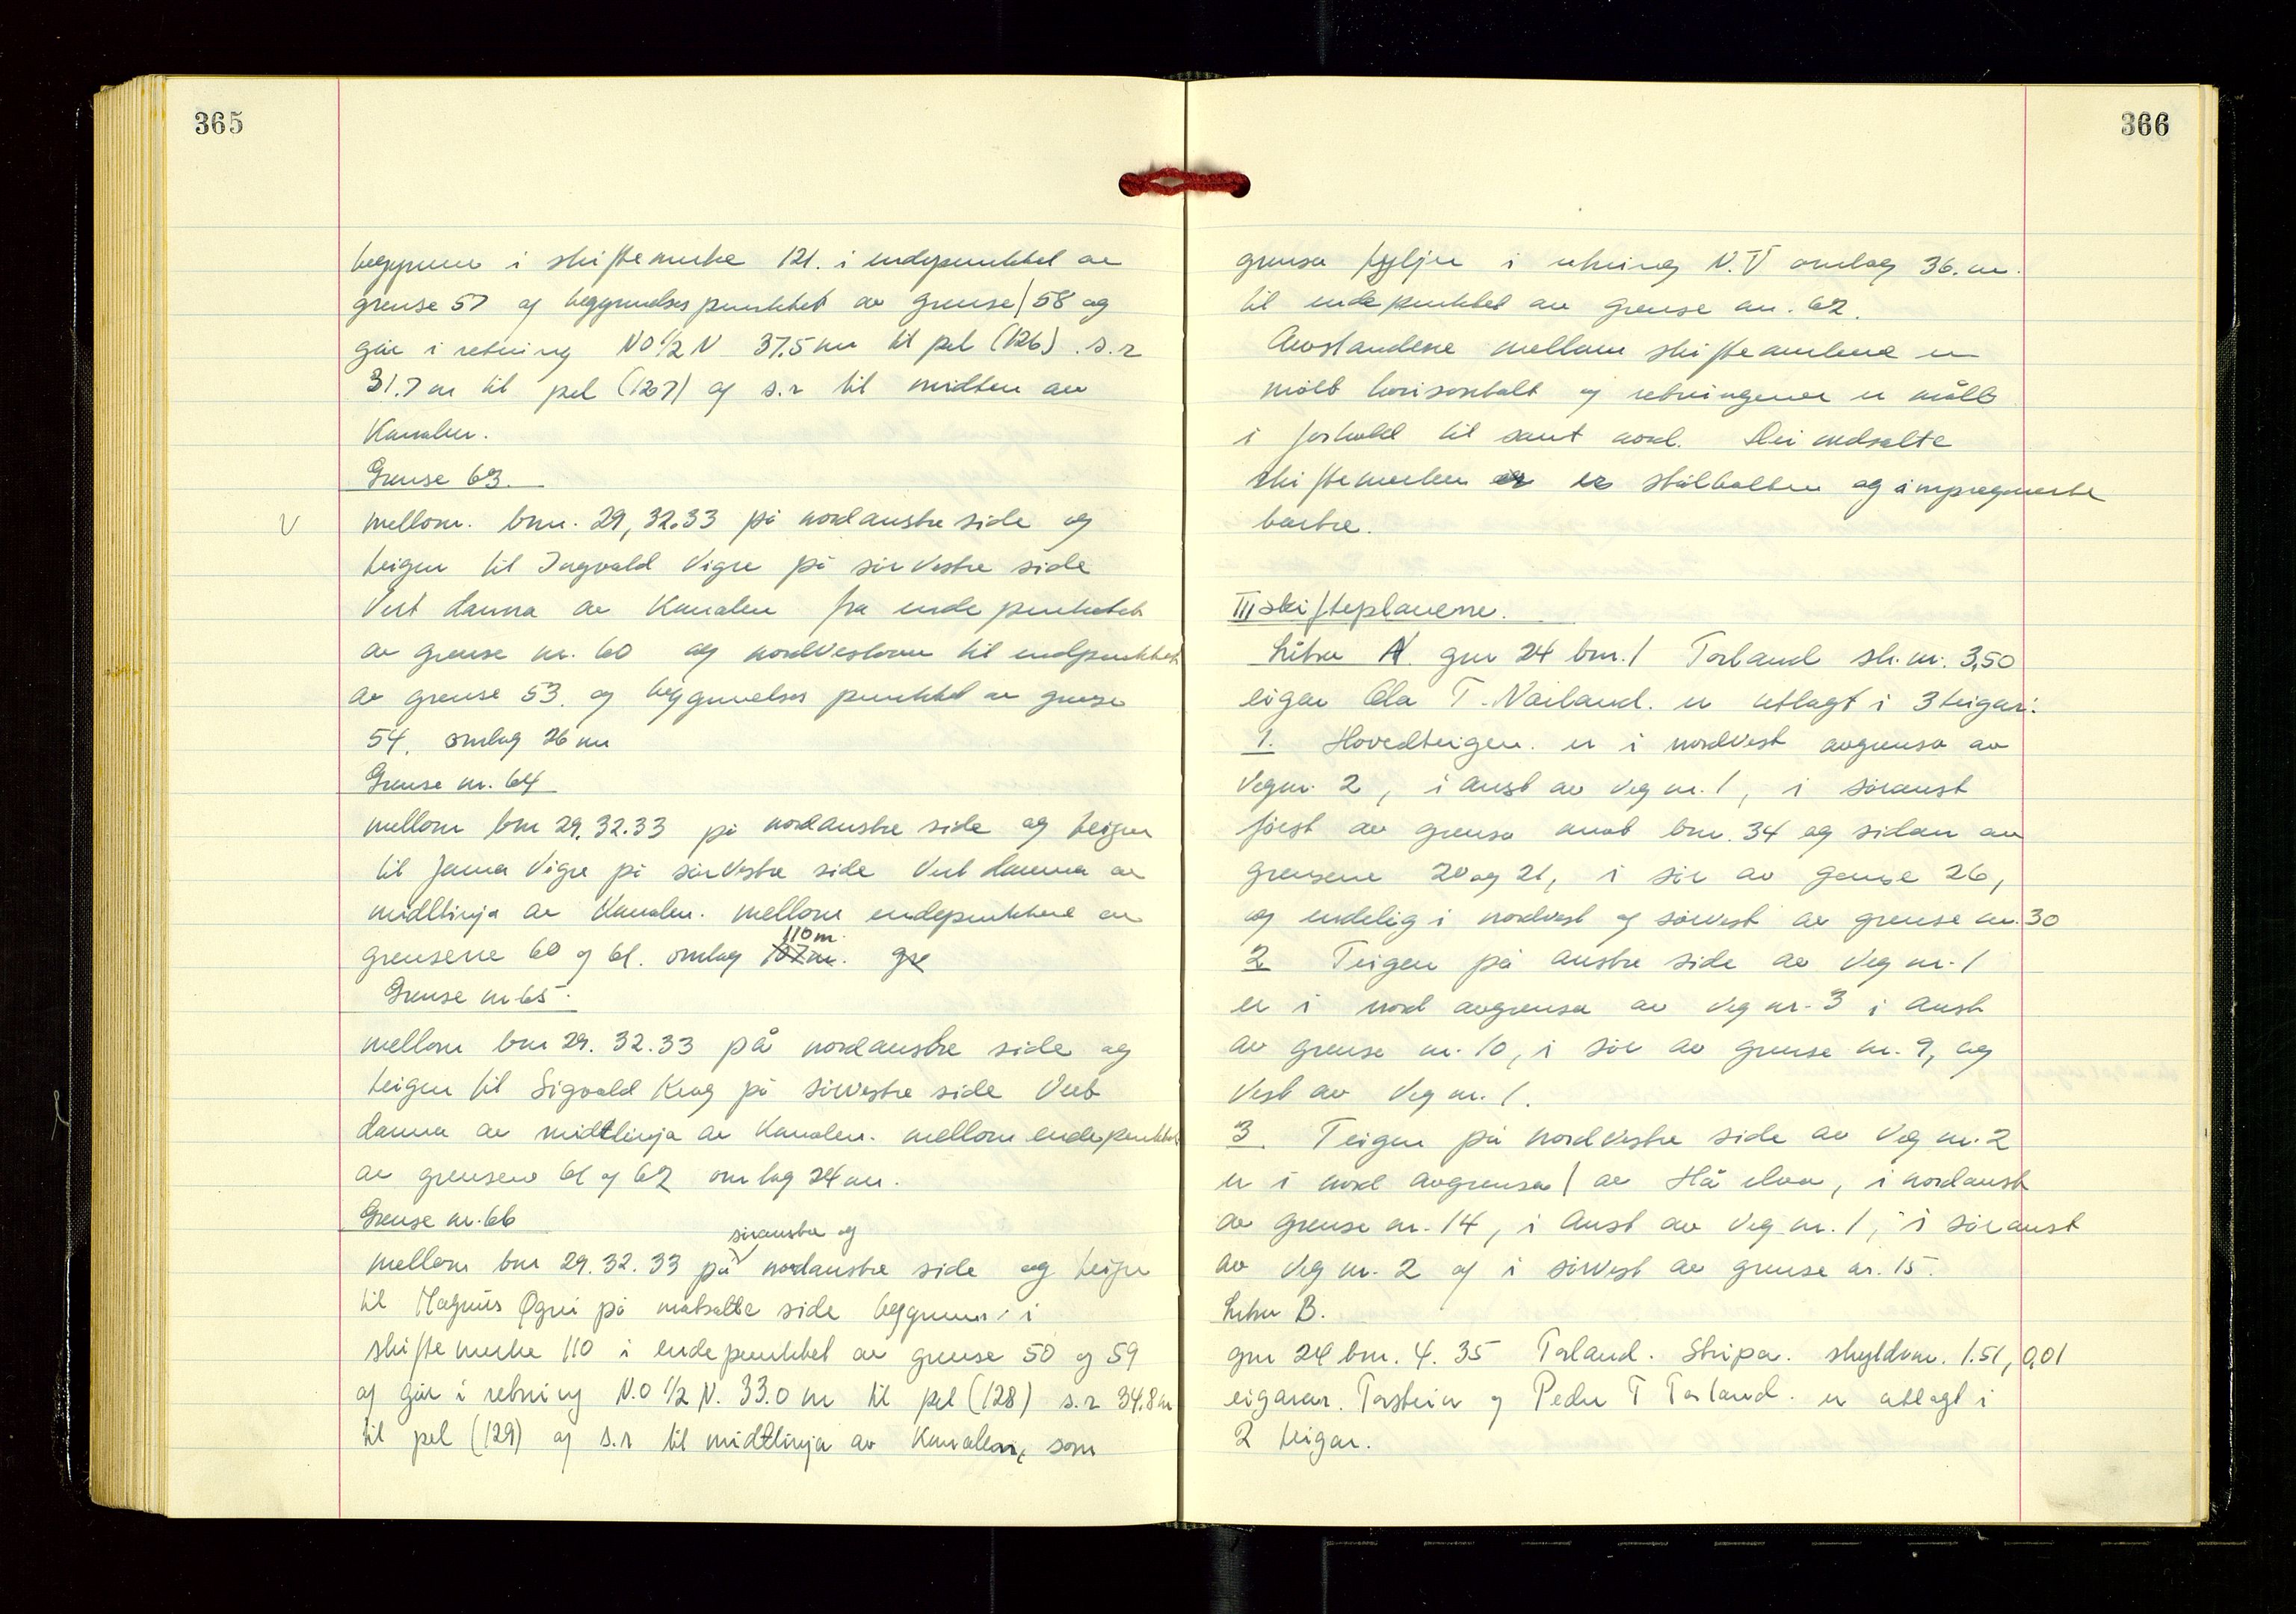 365
beggynner i skiftemerke 121. i endepunktet av
grense 57 og beggynnelsespunktet av grense 58 og
går i retning NO 1/2 N 37.5 m til pel (126). s.r
31.7 m til pel (127) og s.r til midten av
Kanalen.
Grense 63.
mellom. bnr. 29, 32.33 på nordaustre side og
teigen til Ingvald Vigre på sørvestre side
Vert danna av Kanalen fra endepunktet
av grense nr. 60 og nordvestover til endpunktet
av grense 53. og beggynnelses punktet av grense
54, omlag 26 m
Grense nr. 64
mellom bnr 29.32.33 på nordaustre side og teigen
til Jenna Vigre på sørvestre side Vert danna av
midtlinja av Kanalen. mellom endepunktene av
110 m.
grensene 60 og 61. omlag 107 m. gre
Grense nr 65.
mellom bnr 29. 32.33 på nordaustre side og
teigen til Sigvald Krag på sørvestre side Vert
danna av midtlinja av Kanalen. mellom endepunktet
av grensene 61 og 62 omlag 24 m.
Grense nr. 66
søraustre og
mellom bnr 29.32.33 på nordaustre side og teigen
til Magnus Øgrei på motsatte side beggynner i
skiftemerke 110 i endepunktet av grense 50 og 59
og går i retning N.O 1/2 N. 33.0 m til pel (128) s.r 34.8 m
til pel (129) og s.r til midtlinja av Kanalen, som
366
grensa fyljer i retning N.V omlag 36. m.
til endepunktet av grense nr. 62.
Avstandene mellom skiftemerkene er
målt horisontalt og retningene er målt
i forhold til sant nord. Dei nedsatte
skiftemerker er er stålbolter og impregnerte
III skifteplanene.
Litra A. gnr 24 bnr. 1 Torland sk. m. 3,50
eigar Ola T. Nærland. er utlagt i 3 teigar:
1. Hovedteigen. er i nordvest avgrensa av
Veg nr. 2, i aust av Veg nr. 1, i søraust
først av grensa mot bnr. 34 og sidan av
grensene 20 og 21, i sør av gense 26,
og endelig i nordvest og sørvest av grense nr. 30
2. Teigen på austre side av Veg nr. 1
er i nord avgrensa av Veg nr. 3 i aust
av grense nr. 10, i sør av grense nr. 9, og
Vest av Veg nr. 1.
3. Teigen på nordvestre side av Veg nr. 2
er i nord avgrensa av Hå elva, i nordaust
av grense nr. 14, i aust av Veg nr. 1, i søraust
av Veg nr. 2 og i sørvest av grense nr. 15.
Litra B.
gnr 24 bnr. 4. 35 Torland. Stripa. skyldmr. 1.51, 0,01
eigarar. Torstein og Peder T Torland. er utlagt i
2 teigar.